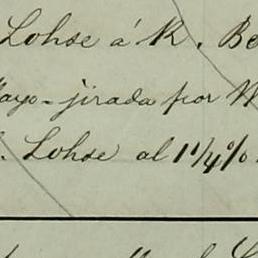 Lohse á R. Be
ayo - jirada por W
. Lohse al 1 1/4 %